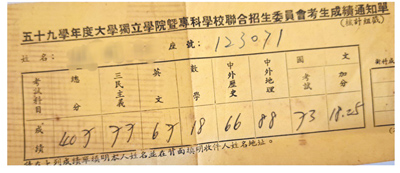 五十九學年度大學獨立學院暨專科學校聯合招生委員會考生成績通知單
(統計組製)
姓名： 座號：123071
考試科目 總分 三民主義 英文 數學 中外歷史 中外地理 國文 考試 加分
成績 407 77 67 18 66 88 73 18.25
填明本人姓名並在背面填明收件人姓名地址。